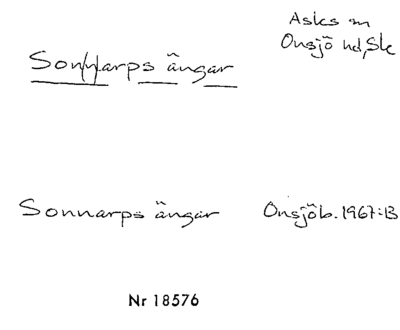 Asks sn
Onsjö hd, Sk
Sonnarps ängar
Sonnarps ängar Onsjöb. 1967:B
Nr 18576